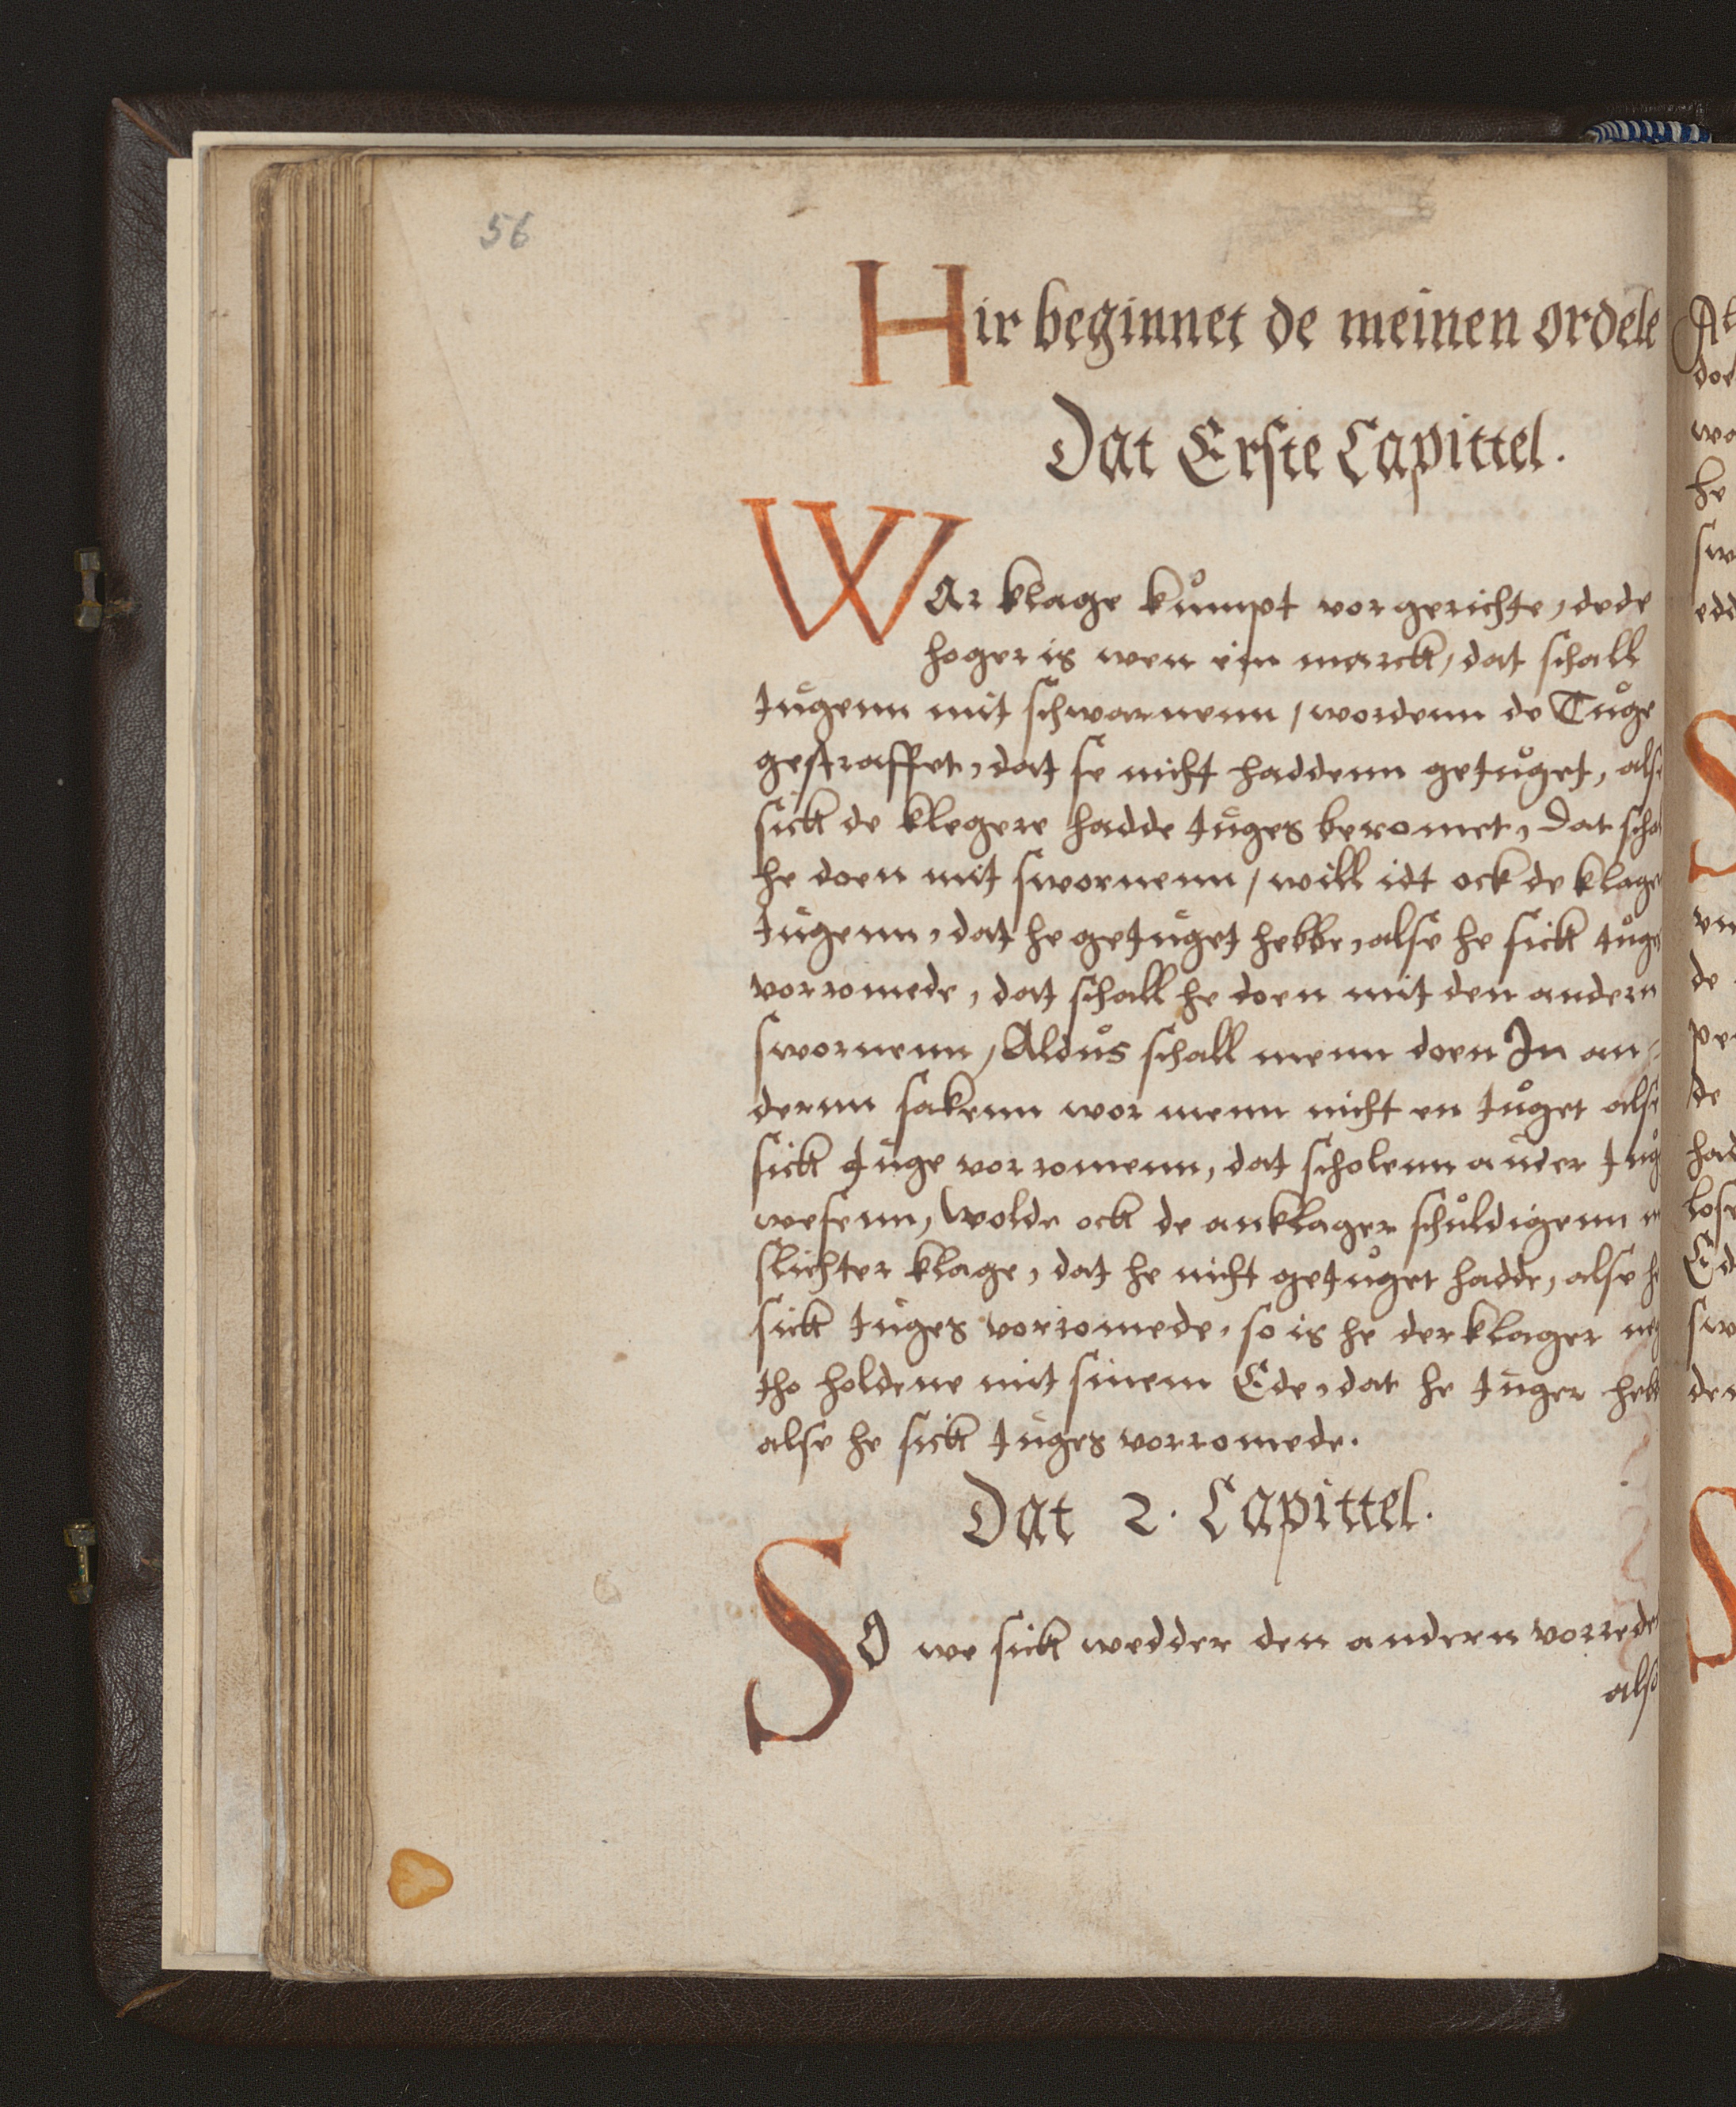 56
Hir beginnet de meinen ordele
Dat Erste Capittel.
WAr klage kůmpt vor gerichte, dede
hoger is wen ein marck, dat schall
tůgenn mit schwarnenn, wordenn de Tůge
gestraffet, dat se nicht haddenn getůget, alse
sick de klegere hadde tůges beromet, Dat scha
he doen mit swornenn, will idt ock de klage
tůgenn, dat he getůget hebbe, alse he sick tůge
vorromede, dat schall he doen mit den andern
swornenn, Aldus schall menn doen In an=
dernn sakenn wor menn nicht en tůget alse
sick tůge vorromenn, dat scholenn ander tůg
wesenn, Wolde ock de anklager schůldigenn
slichter klage, dat he nicht getůget hadde, alse h
sick tůges vorromede, so is he der klager ne
tho holdene mit sinem Ede, dat he tůger hebb
alse he sick tůges vorromede.
Dat 2. Capittel.
SO we sick wedder den andern vorrede
also